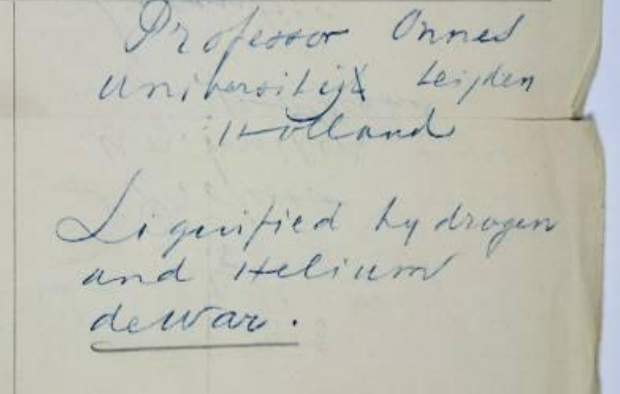 Professor Onnes
Universiteit Leijden
Holland
Liquified hydrogen
and Helium
dewar.